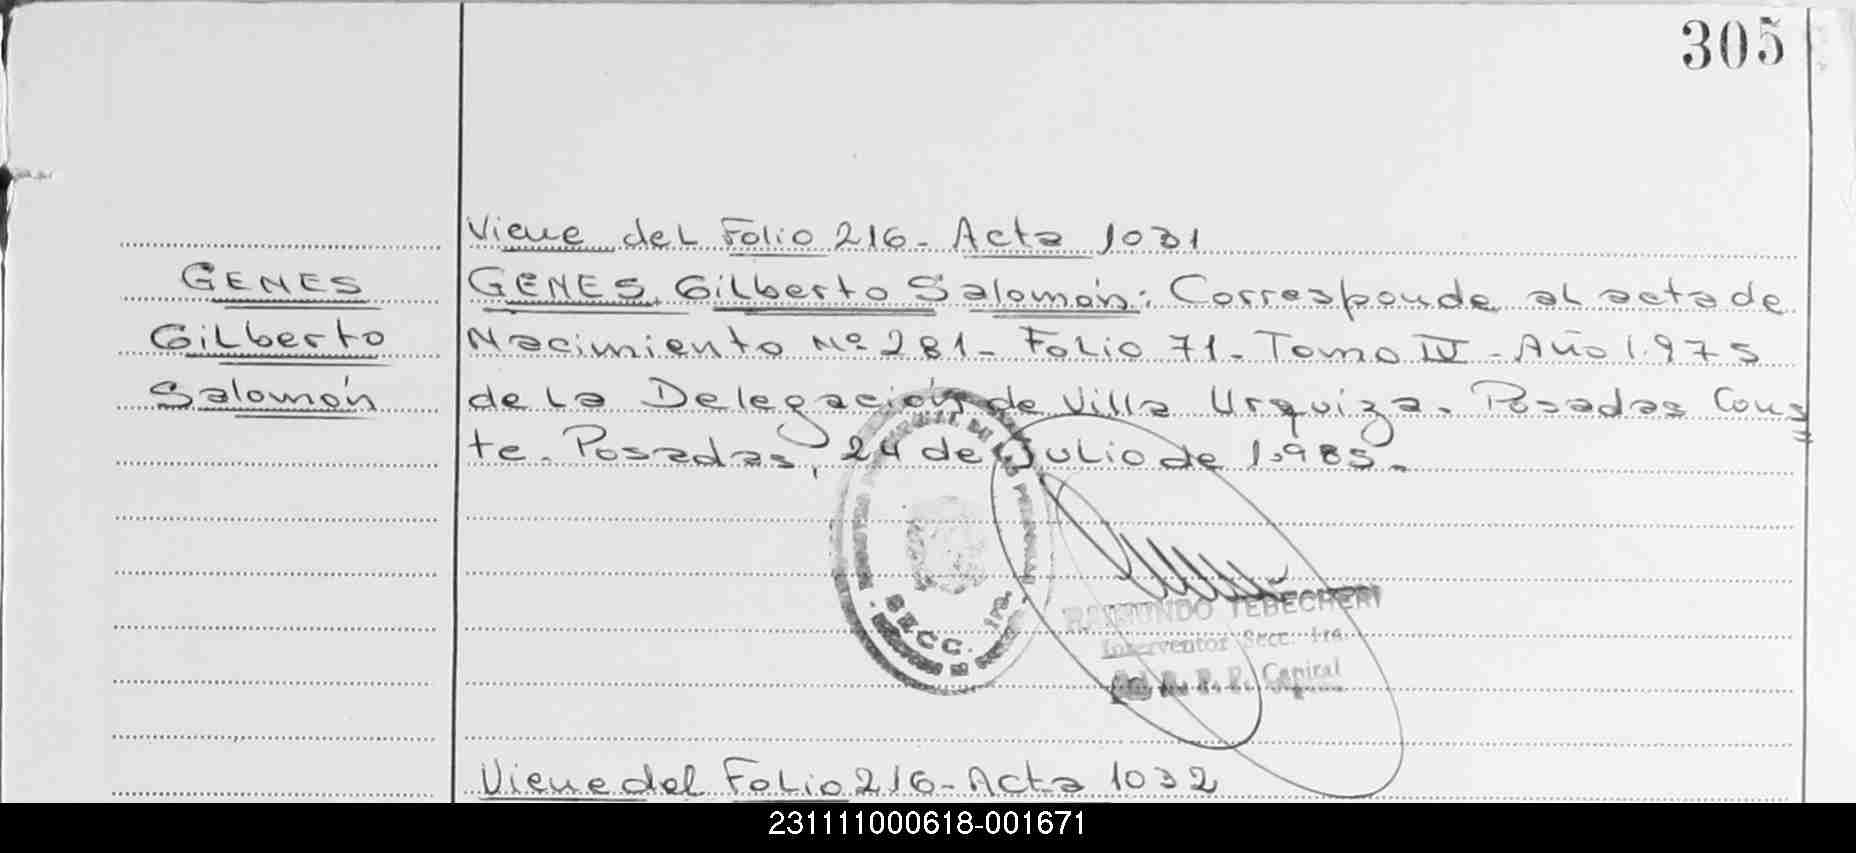 305
Viene del Folio 216- Acta 1031
GENES
Gilberto
Salomón
GENES, Gilberto Salomón: Corresponde al acta de
Nacimiento Nº 281- Folio 71- Tomo IV - Año 1.975
de la Delegación de Villa Urquiza. Posadas Cons
te. Posadas, 24 de Julio de 1.985.
SECC. 1ra.
RAIMUNDO TEBECHERI
Interventor Secc. 1ra.
R. P. Capital
Viene del Folio 216- Acta 1032
231111000618-001671